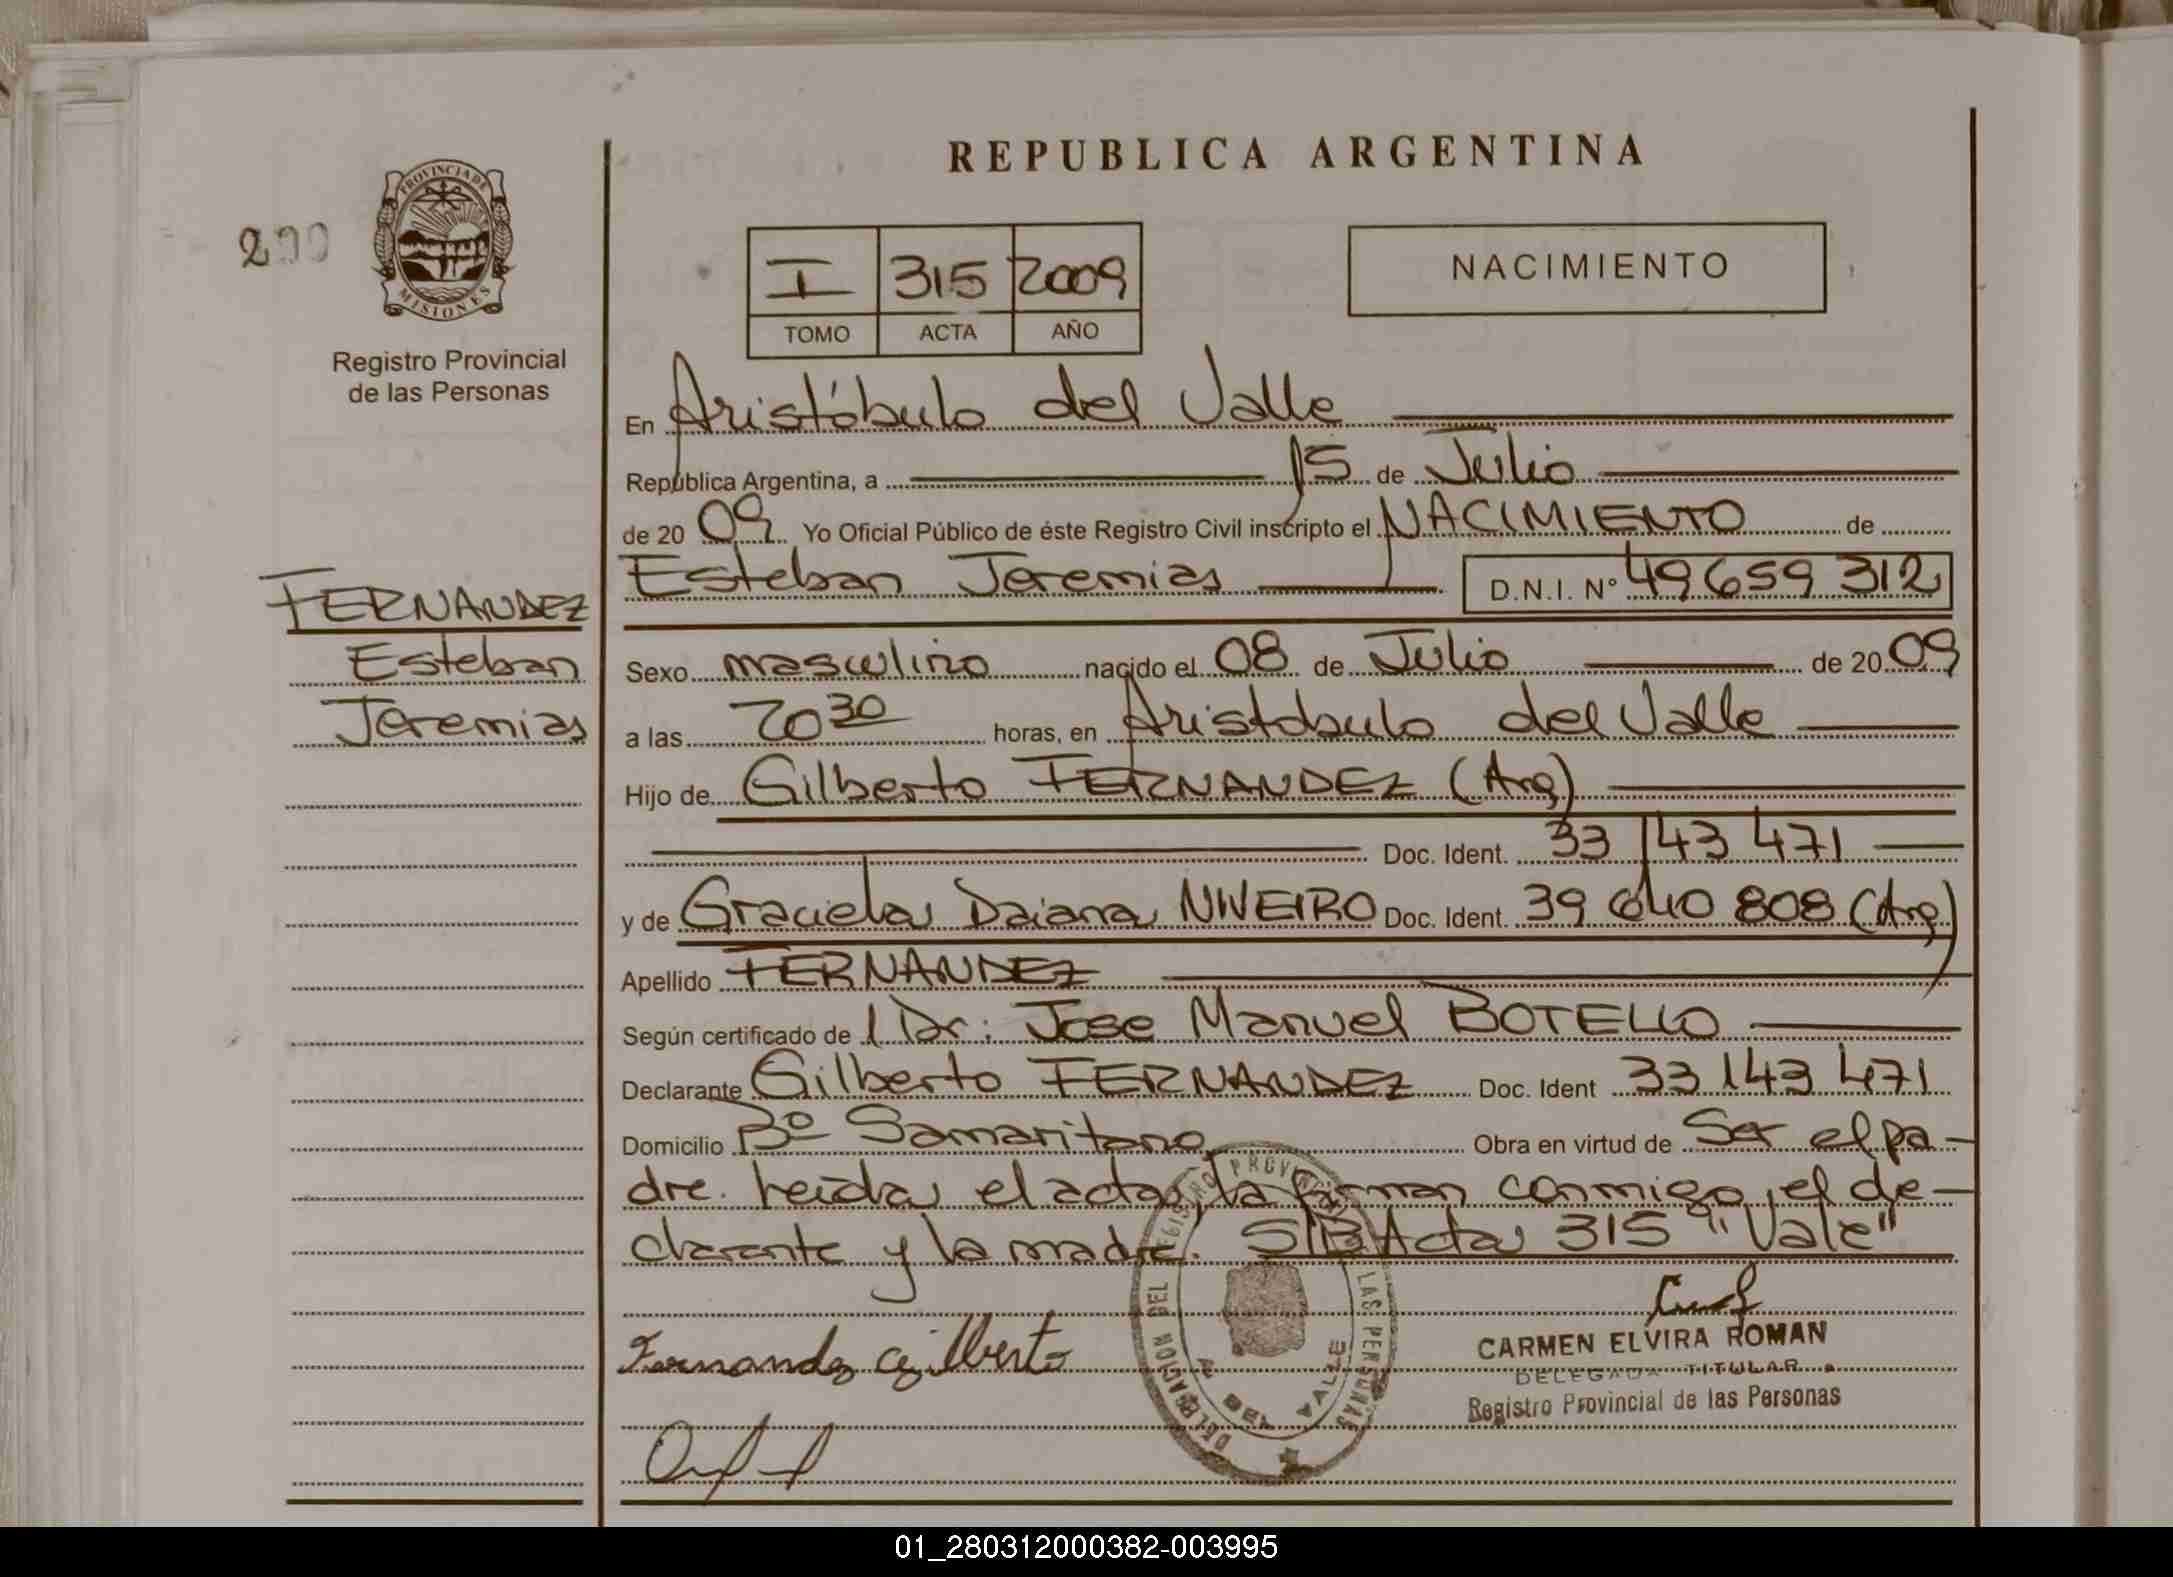 REPUBLICA ARGENTINA
PROVINCIA DE
MISIONES
Registro Provincial
de las Personas
I 315 2009
TOMO ACTA AÑO
NACIMIENTO
En Aristóbulo del Valle
República Argentina, a 15 de Julio
de 20 09 Yo Oficial Público de éste Registro Civil inscripto el NACIMIENTO de
FERNANDEZ
Esteban
Jeremias
Esteban Jeremias D.N.I. N° 49 659 312
Sexo masculino nacido el 08 de Julio de 20 09
a las 20 30 horas, en Aristobulo del Valle
Hijo de Gilberto FERNANDEZ (Arg)
Doc. Ident. 33 143 471
y de Graciela Daiana Doc. Ident. 39 640 808 (Arg)
Apellido FERNANDEZ
Según certificado de Dr: Jose Manuel BOTELLO
Declarante Gilberto FERNANDEZ Doc. Ident 33 143 471
Domicilio Bº Samaritano Obra en virtud de Ser el pa-
dre. Leida el acta, la firman conmigo, el de-
clarante y la madre. S/B Acta 315 "Vale"
Fernandez Gilberto
DELEGACION DEL REGISTRO PROVINCIAL LAS PERSONAS
VALLE
CARMEN ELVIRA ROMAN
DELEGADA TITULAR
Registro Provincial de las Personas
01_280312000382-003995